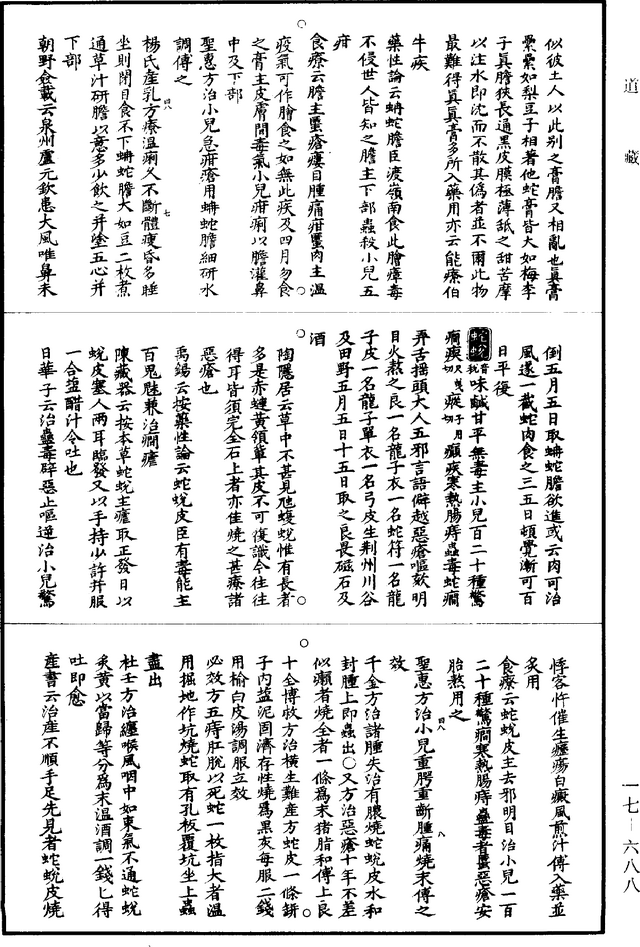 道藏
似彼土人以此别之膏膽又相亂也真膏
纍纍如梨豆子相著他蛇膏皆大如梅李
子真膽狹長通黑皮膜極薄舐之甜苦摩
以注水即沈而不散其僞者並不爾此物
最難得真真膏多所入藥用亦云能療伯
牛疾
藥性論云蚺蛇膽臣渡嶺南食此膾瘴毒
不侵世人皆知之膽主下部蟲殺小兒五
疳
食療云膽主䘌瘡瘻目腫痛疳䘌肉主温
疫氣可作膾食之如無此疾及四月勿食
之膏主皮膚間毒氣小兒疳痢以膽灌鼻
中及下部
聖惠方治小兒急疳瘡用蚺蛇膽細研水
調傅之
楊氏產乳方療温痢久不斷體瘦昏多睡
坐則閉目食不下蚺蛇膽大如豆二枚煮
通草汁研膽以意多少飲之并塗五心并
下部
朝野僉載云泉州盧元欽患大風唯鼻未
四八
七
倒五月五日取蚺蛇膽欲進或云肉可治
風遂一截蛇肉食之三五日頓覺漸可百
日平復
蛇蛻音稅味鹹甘平無毒主小兒百二十種驚
癇瘈尺曳切瘲子用切癲疾寒熱腸痔蟲毒蛇癇
弄舌摇頭大人五邪言語僻越惡瘡嘔欬明
目火熬之良一名龍子衣一名蛇符一名龍
子皮一名龍子單衣一名弓皮生荆州川谷
及田野五月五日十五日取之良畏磁石及
酒
陶隱居云草中不甚見虺蝮蛻惟有長者
多是赤蝰黄頷輩其皮不可復識今往往
得耳皆須完全石上者亦佳燒之甚療諸
惡瘡也
禹錫云按藥性論云蛇蛻皮臣有毒能主
百鬼魅兼治癇瘧
陳藏器云按本草蛇蛻主瘧取正發日以
蛻皮塞人兩耳臨發又以手持少許并服
一合鹽醋汁令吐也
日華子云治蠱毒辟惡止嘔逆治小兒驚
悸客忤催生癧瘍白癜風煎汁傅入藥並
炙用
食療云蛇蛻皮主去邪明目治小兒一百
二十種驚癇寒熱腸痔蠱毒者䘌惡瘡安
胎熬用之
聖惠方治小兒重腭重斷腫痛燒末傅之
效
千金方治諸腫失治有膿燒蛇蛻皮水和
封腫上即蟲出○又方治惡瘡十年不差
似癩者燒全者一條爲末猪脂和傅上良
十全博救方治横生難產方蛇皮一條餅
子内鹽泥固濟存性燒爲黑灰每服二錢
用榆白皮湯調服立效
必效方五痔肛脱以死蛇一枚指大者濕
用掘地作坑燒蛇取有孔板覆坑坐上蟲
盡出
杜壬方治纏喉風咽中如束氣不通蛇蛻
炙黄以當歸等分爲末温酒調一錢匕得
吐即愈
產書云治產不順手足先見者蛇蛻皮燒
四八
八
一七─六八八